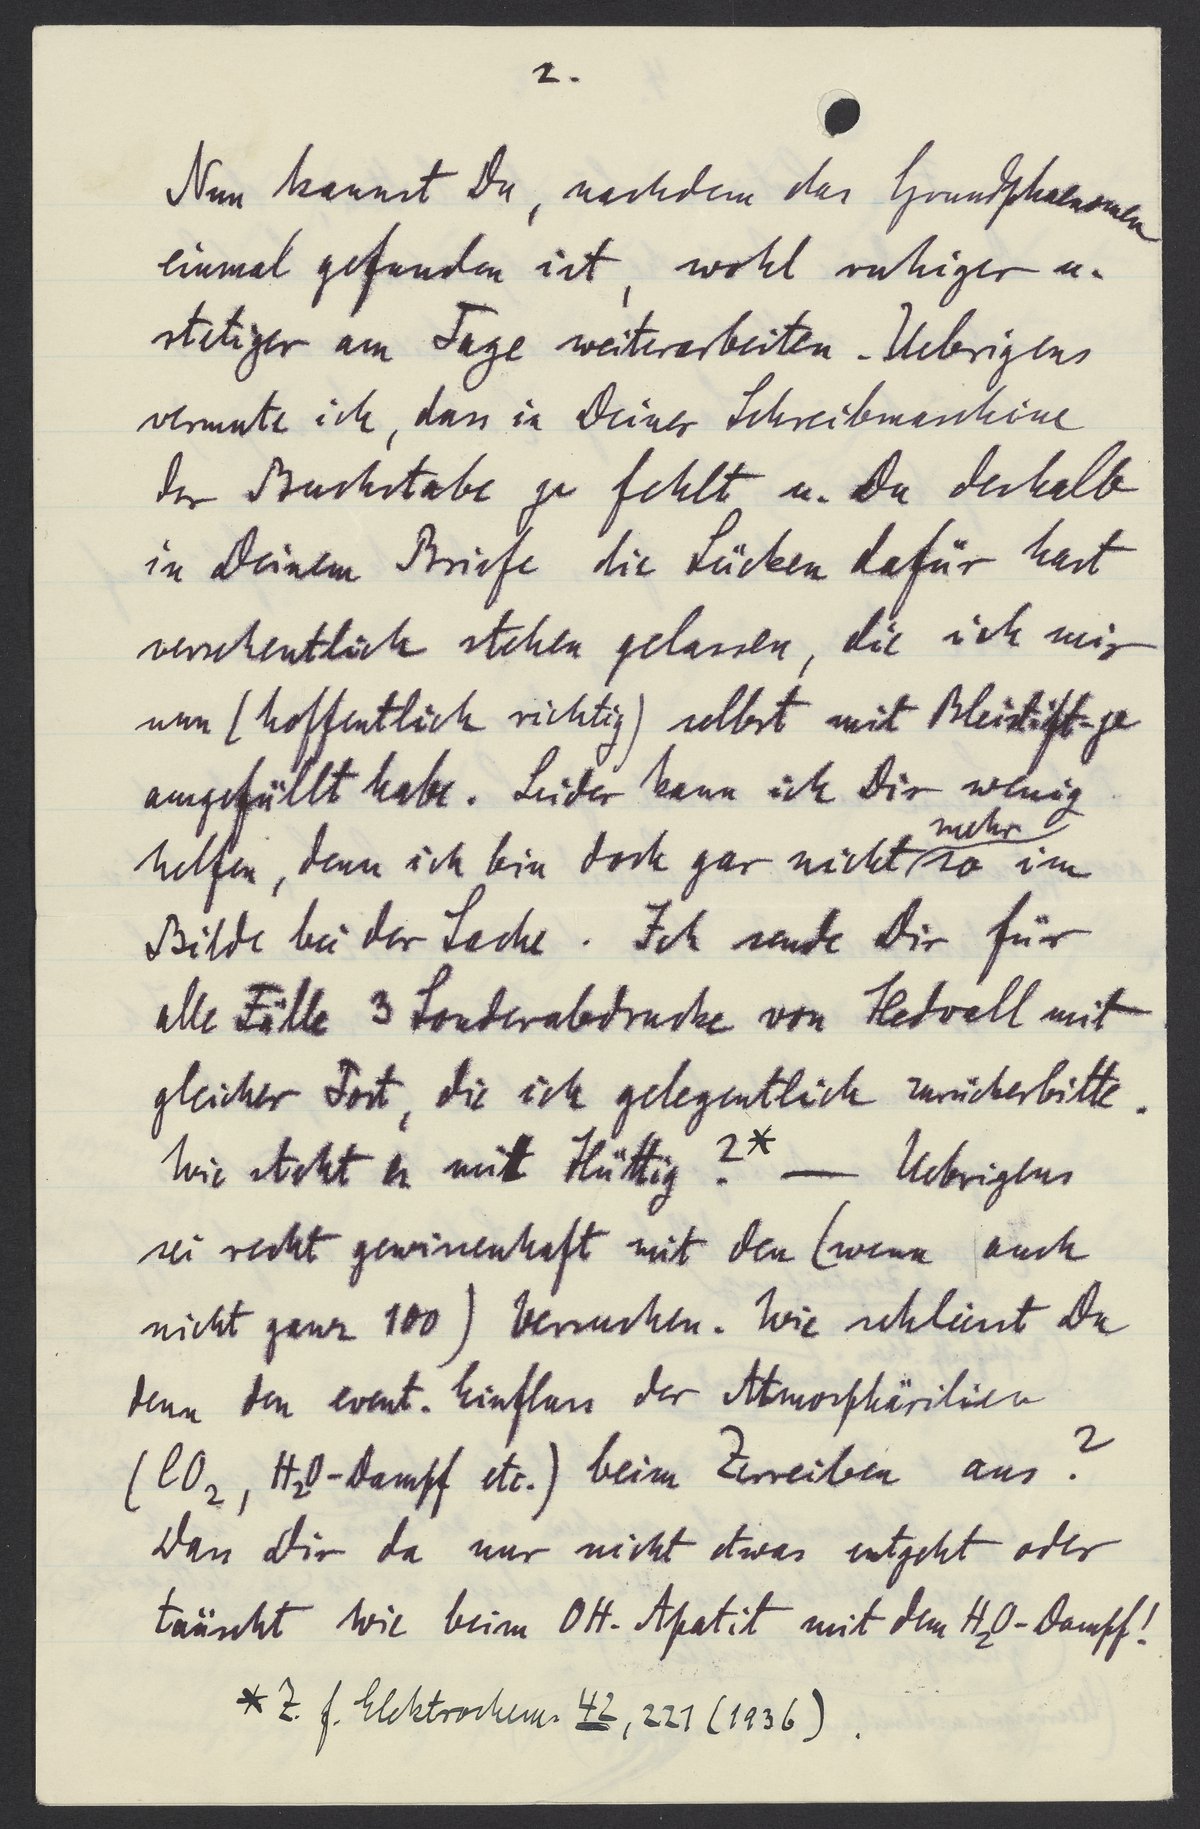 2.
Nun kannst Du, nachdem das Grundphaenomen
einmal gefunden ist, wohl ruhiger u.
stetiger am Tage weiterarbeiten. Uebrigens
vermute ich, dass in Deiner Schreibmaschine
der Buchstabe γ fehlt u. Du deshalb
in Deinem Briefe die Lücken dafür hast
versehentlich stehen gelassen, die ich mir
nun (hoffentlich richtig) selbst mit Bleistift-γ
ausgefüllt habe. Leider kann ich Dir wenig
helfen, denn ich bin doch gar nicht mehr so im
Bilde bei der Sache. Ich sende Dir für
alle Fälle 3 Sonderabdrucke von Hedvall mit
gleicher Post, die ich gelegentlich zurückerbitte.
Wie steht es mit Hüttig?* — Uebrigens
sei recht gewissenhaft mit den (wenn auch
nicht ganz 100) Versuchen. Wie schliesst Du
denn den event. Einfluss der Atmosphärilien
(CO₂, H₂O-Dampf etc.) beim Zerreiben aus?
Dass Dir da nur nicht etwas entgeht oder
täuscht wie beim OH-Apatit mit dem H₂O-Dampf!
* Z. f. Elektrochem. 42, 221 (1936).